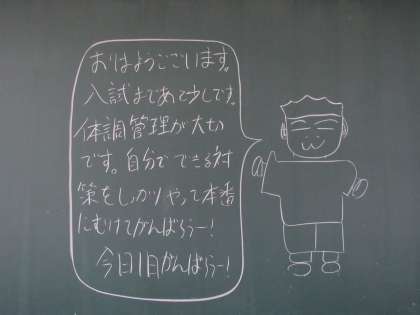 おはようございます。
入試まであと少しです。
体調管理が大切
です。自分でできる対
策をしっかりやって本番
にむけてがんばろうー!
今日1日がんばろうー!